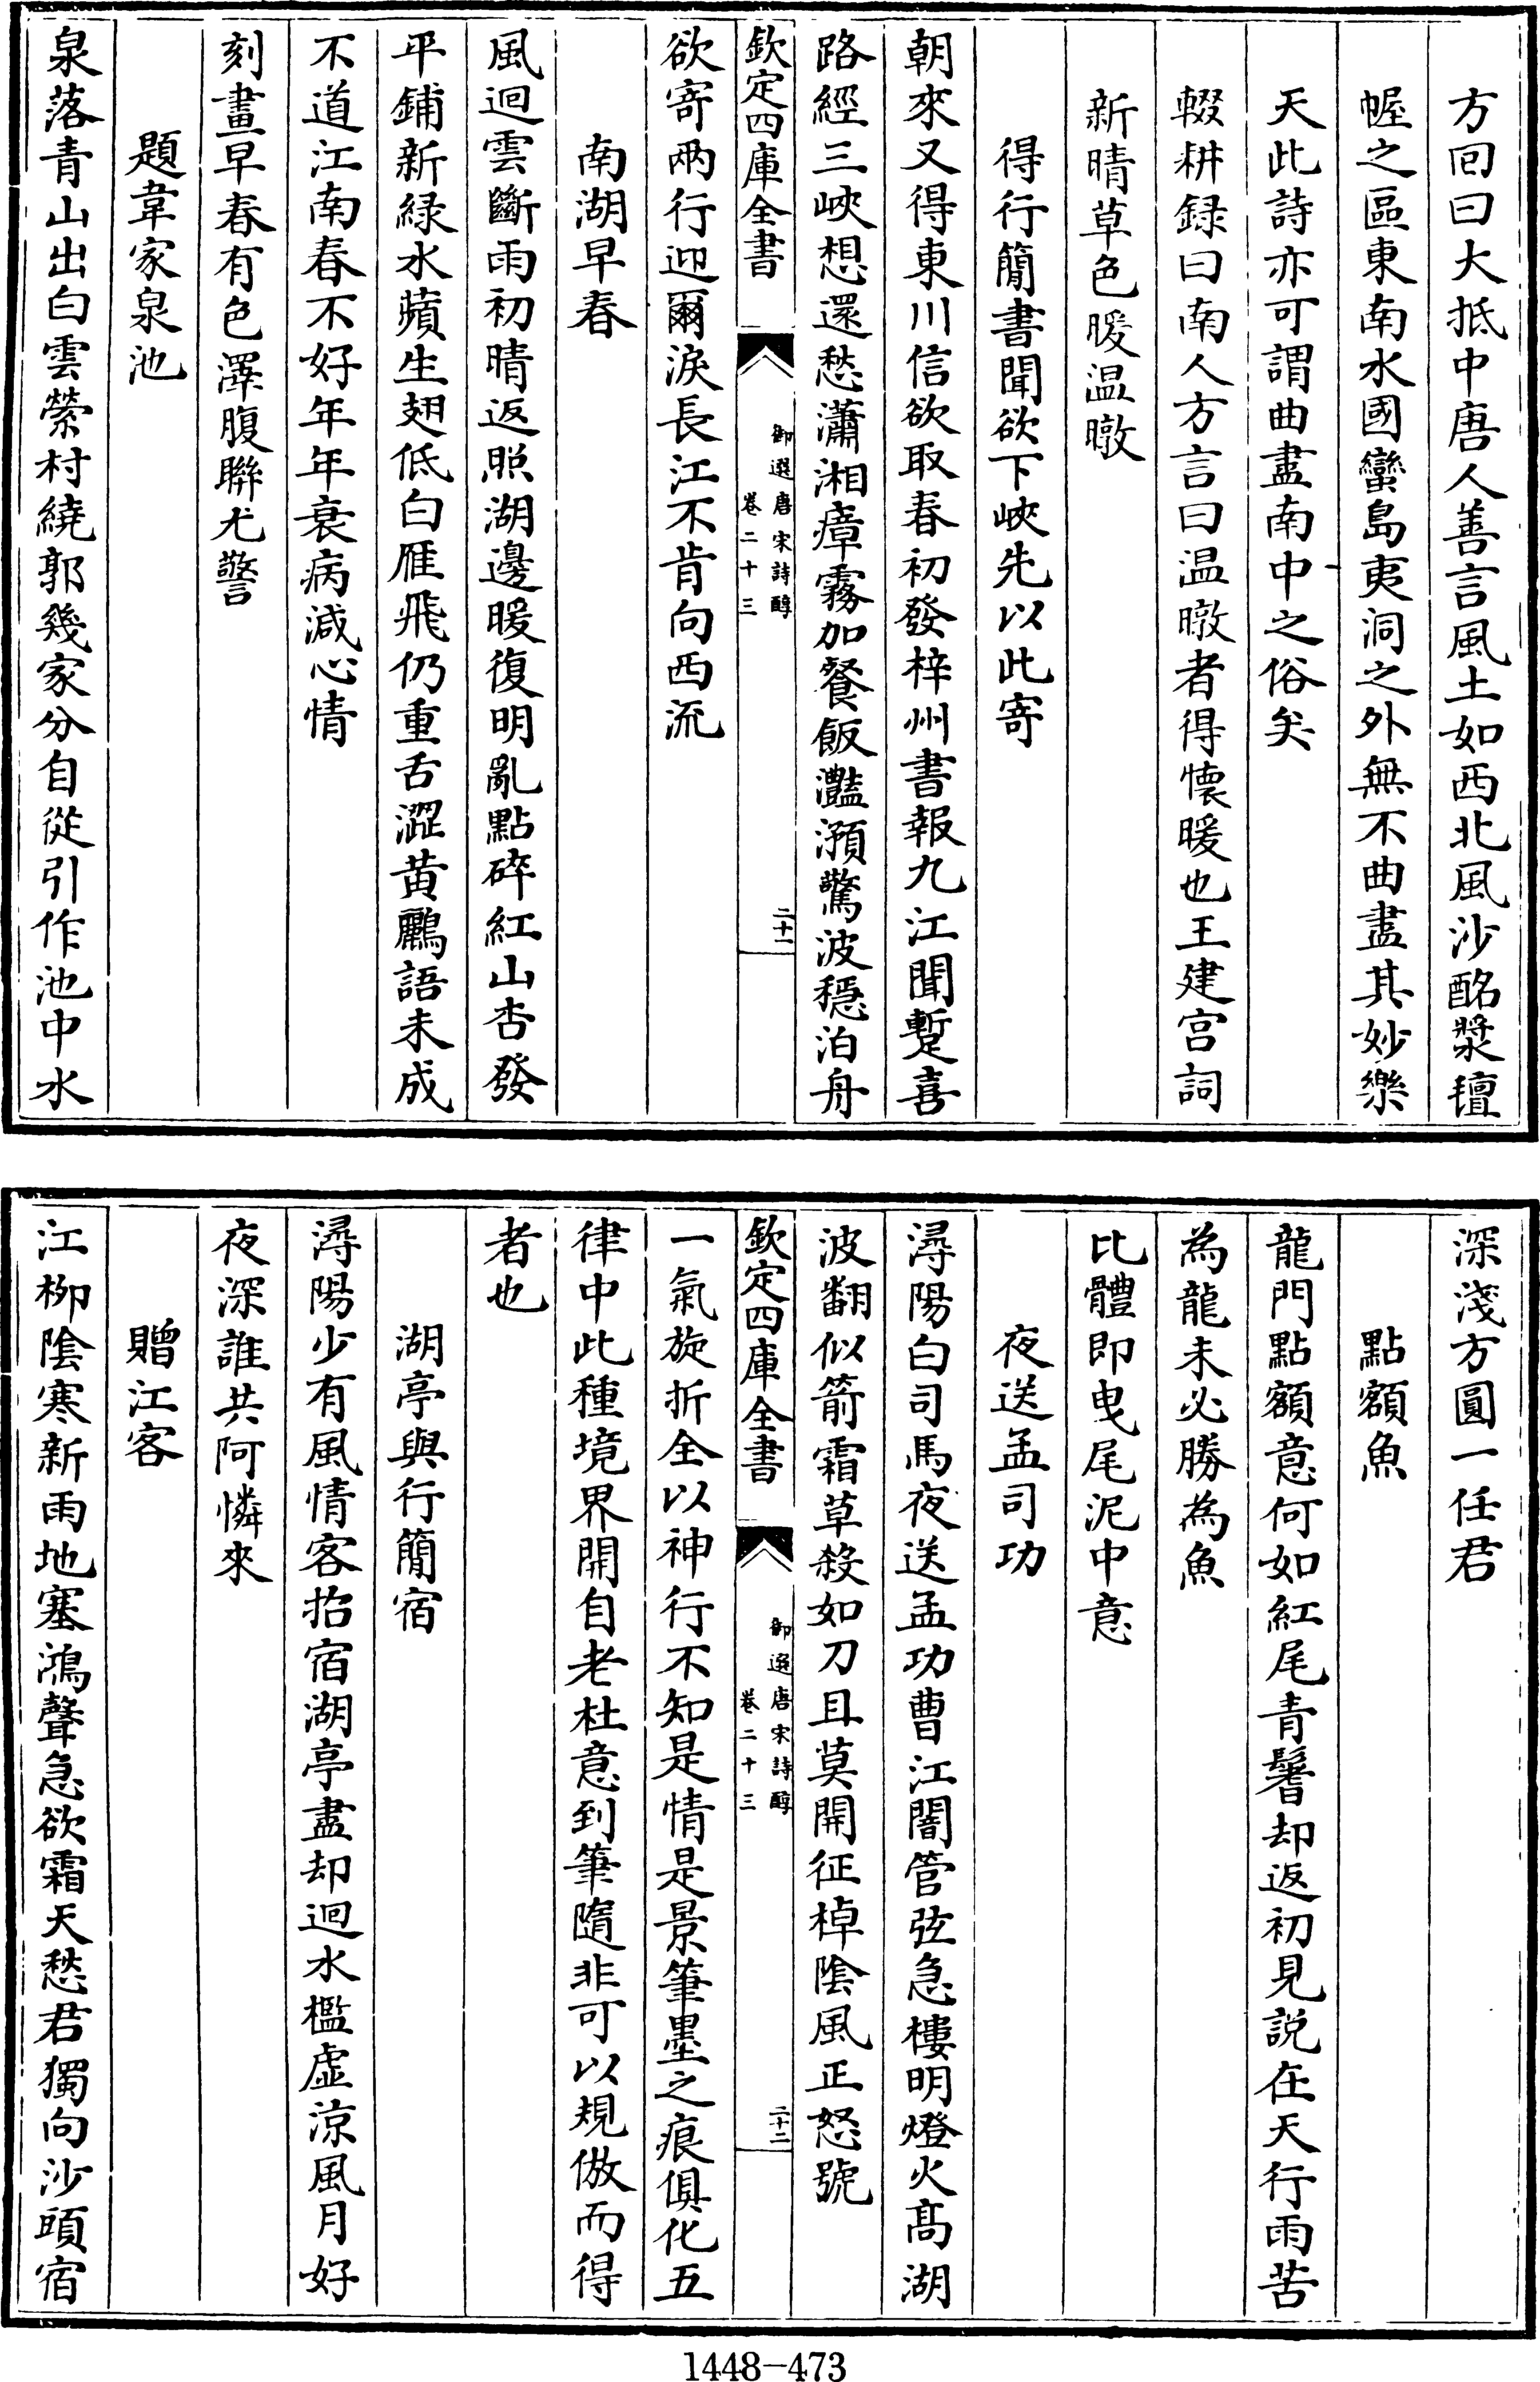 方回曰大抵中唐人善言風土如西北風沙酪漿氊
幄之區東南水國蠻島夷洞之外無不曲盡其妙樂
天此詩亦可謂曲盡南中之俗矣
輟耕録曰南人方言曰温暾者得懐暖也王建宫詞
新晴草色暖温暾
得行簡書聞欲下峽先以此寄
朝來又得東川信欲取春初發梓州書報九江聞蹔喜
路經三峽想還愁瀟湘瘴霧加餐飯灩澦驚波穩泊舟
欽定四庫全書
御選唐宋詩醇
卷二十三
二十一
欲寄兩行迎爾淚長江不肯向西流
南湖早春
風迴雲斷雨初晴返照湖邊暖復明亂點碎紅山杏發
平鋪新緑水蘋生翅低白雁飛仍重舌澀黄鸝語未成
不道江南春不好年年衰病減心情
刻畫早春有色澤腹聯尤警
題韋家泉池
泉落青山出白雲縈村繞郭幾家分自從引作池中水
深淺方圓一任君
點額魚
龍門點額意何如紅尾青鬐却返初見説在天行雨苦
為龍未必勝為魚
比體即曳尾泥中意
夜送孟司功
潯陽白司馬夜送孟功曹江闇管弦急樓明燈火髙湖
波翻似箭霜草殺如刀且莫開征棹陰風正怒號
欽定四庫全書
御選唐宋詩醇
卷二十三
二十二
一氣旋折全以神行不知是情是景筆墨之痕俱化五
律中此種境界開自老杜意到筆隨非可以規倣而得
者也
湖亭與行簡宿
潯陽少有風情客招宿湖亭盡却迴水檻虛涼風月好
夜深誰共阿憐來
贈江客
江栁陰寒新雨地塞鴻聲急欲霜天愁君獨向沙頭宿
1448-473